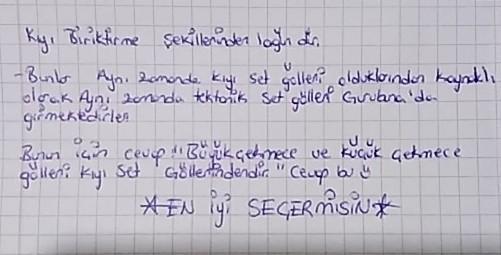 Kıyı Biriktirme şekillerinden lagün dir.
-Bunlar Aynı zamanda kıyı set gölleri olduklarından kaynaklı
olarak Aynı zamanda tektonik set gölleri Gurubuna'da
girmektedirler
Bunun için cevap "Büyükçekmece ve küçük çekmece
gölleri kıyı set Göllerindendir." Cevap bu
*EN iyi SEÇERMİSİN*